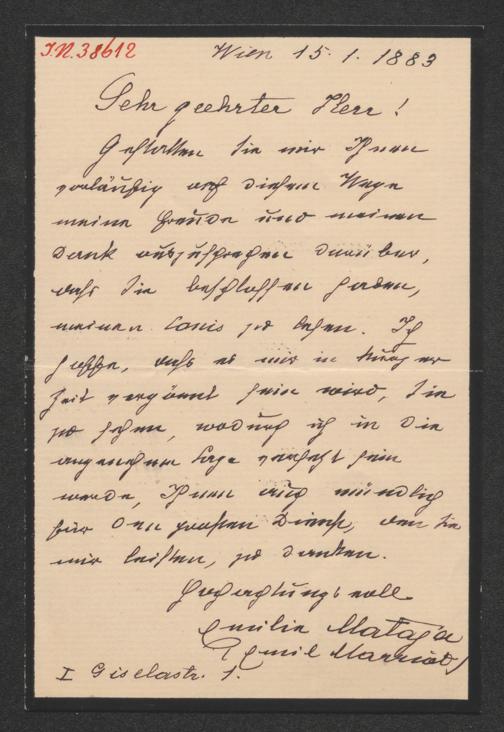 I.N. 38612
Wien 15. 1. 1883
Sehr geehrter Herr!
Gestatten Sie mir Ihnen
vorläufig auf diesem Wege
meine Freude und meinen
Dank auszusprechen darüber,
daß Sie beschlossen haben,
meinen zu lesen. Ich
hoffe, daß es mir in kurzer
Zeit vergönnt sein wird, Sie
zu sehen, wodurch ich in die
angenehme Lage versetzt sein
werde, Ihnen auch mündlich
für den großen Dienst, den Sie
mir leisten, zu danken.
Hochachtungsvoll
Emilie Mataja
(Emil Marriot)
I Giselastr. 1.